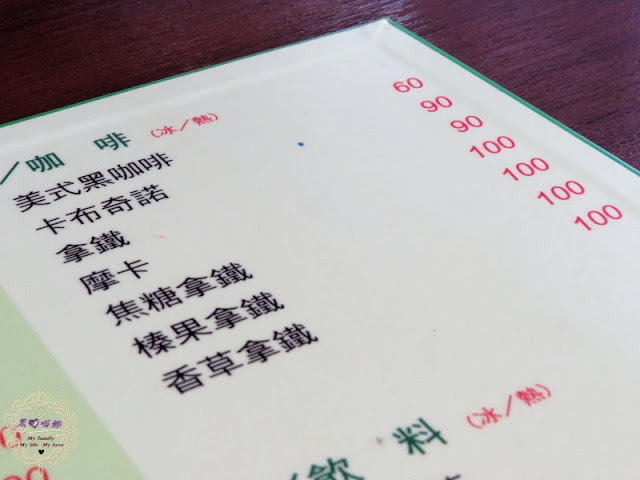 ／咖 啡 (冰／熱)
美式黑咖啡 60
卡布奇諾 90
拿鐵 90
摩卡 100
焦糖拿鐵 100
榛果拿鐵 100
香草拿鐵 100
／飲 料 (冰／熱)
My family
My life My love